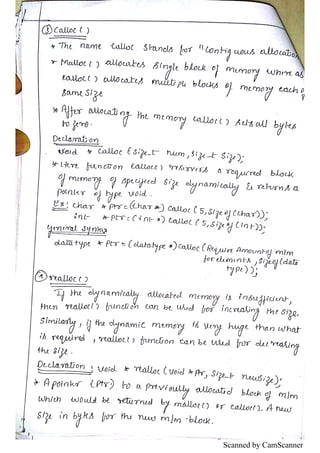 ③ Calloc()
* The name calloc stands for "Contiguous allocation
* Malloc() allocates single block of memory whereas
calloc() allocates multiple blocks of memory each of
same size
* After allocating the memory calloc() sets all bytes
to zero.
Declaration
void * calloc (size_t num, size_t size);
* Here function calloc() reserves a required block
of memory of specified size dynamically & returns a
pointer of type void.
Ex: char * ptr = (char *) calloc (5, sizeof(char));
int * ptr = (int *) calloc (5, sizeof(int));
General syntax
datatype * ptr = (datatype *) calloc (Require Amount of m/m
for elements, sizeof(data
type));
④ realloc()
If the dynamically allocated memory is insufficient,
then realloc() function can be used for increasing the size.
Similarly, if the dynamic memory is very huge than what
is required, realloc() function can be used for decreasing
the size.
Declaration: void * realloc (void *ptr, size_t newsize);
* A pointer (ptr) to a previously allocated block of m/m
which would be returned by malloc() or calloc(). A new
size in bytes for the new m/m-block.
Scanned by CamScanner